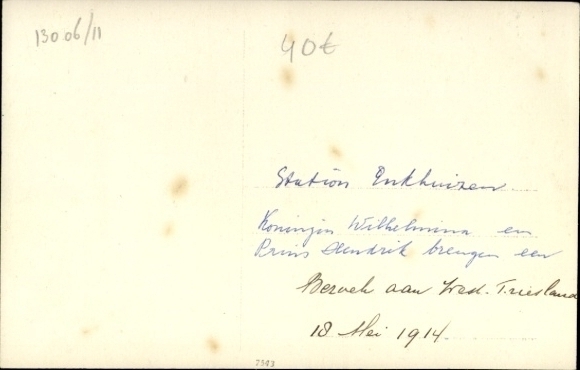 130.06/11
40€
Station Enkhuizen
Koningin Wilhelmina en
Prins Hendrik brengen een
Bezoek aan Friesland
18 Mei 1914.
7593